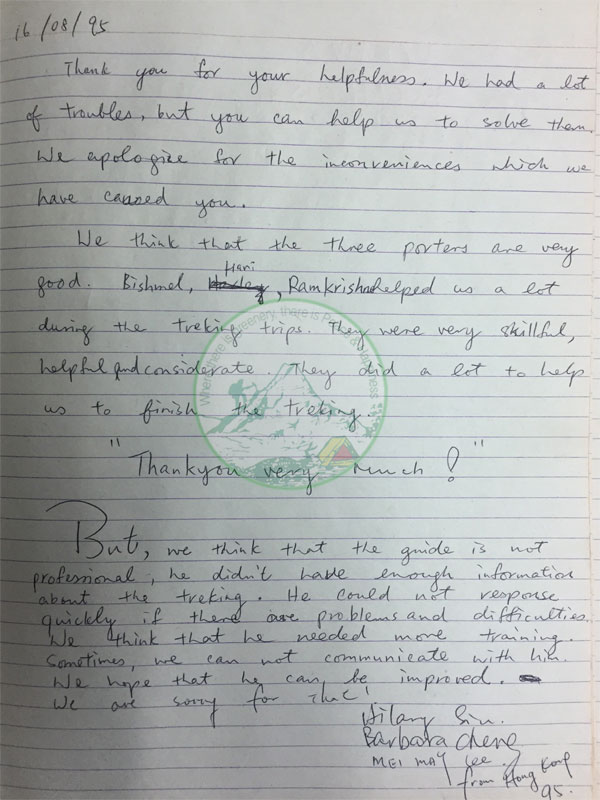 16/08/95
Thank you for your helpfulness. We had a lot
of troubles, but you can help us to solve them.
We apologize for the inconveniences which we
have caused you.
We think that the three porters are very
good. Bishmel, Hari, Ramkrishna helped us a lot
during the treking trips. They were very skillful,
helpful and considerate. They did a lot to help
us to finish the treking.
"Thankyou very much!"
But, we think that the guide is not
professional, he didn't have enough information
about the treking. He could not response
quickly if there are problems and difficulties.
We think that he needed more training.
Sometimes, we can not communicate with him.
We hope that he can be improved.
We are sorry for that!
Hilary Siu.
Barbara Cheng
MEI MAY Lee.
from Hong Kong
95.
Where there is Greenery, there is Peace & Happiness